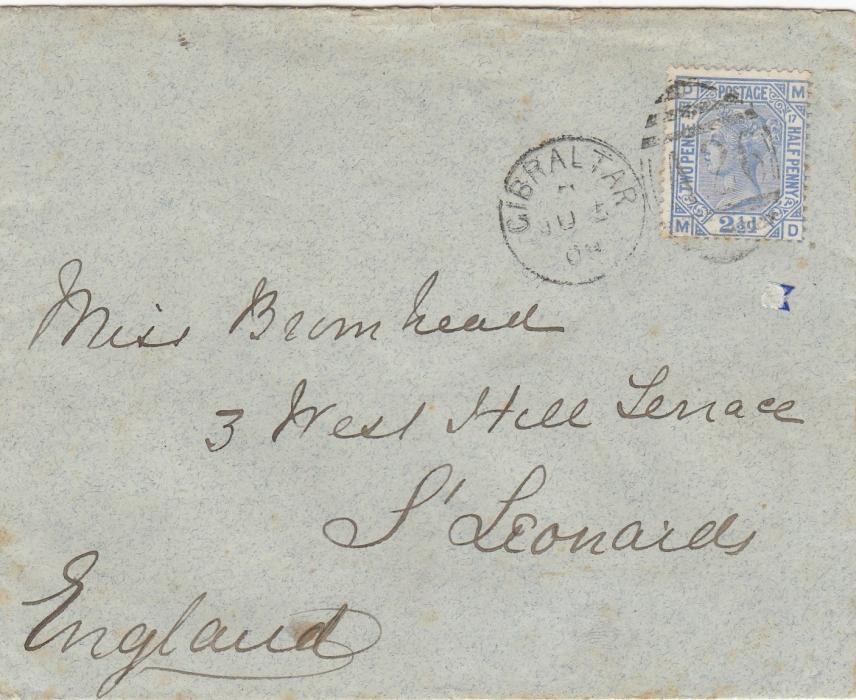 D POSTAGE M
TWO PENCE HALF PENNY
17
M 2½d D
GIBRALTAR
JU 5
A26
Miss Bromhead
3 West Hill Terrace
St Leonards
England